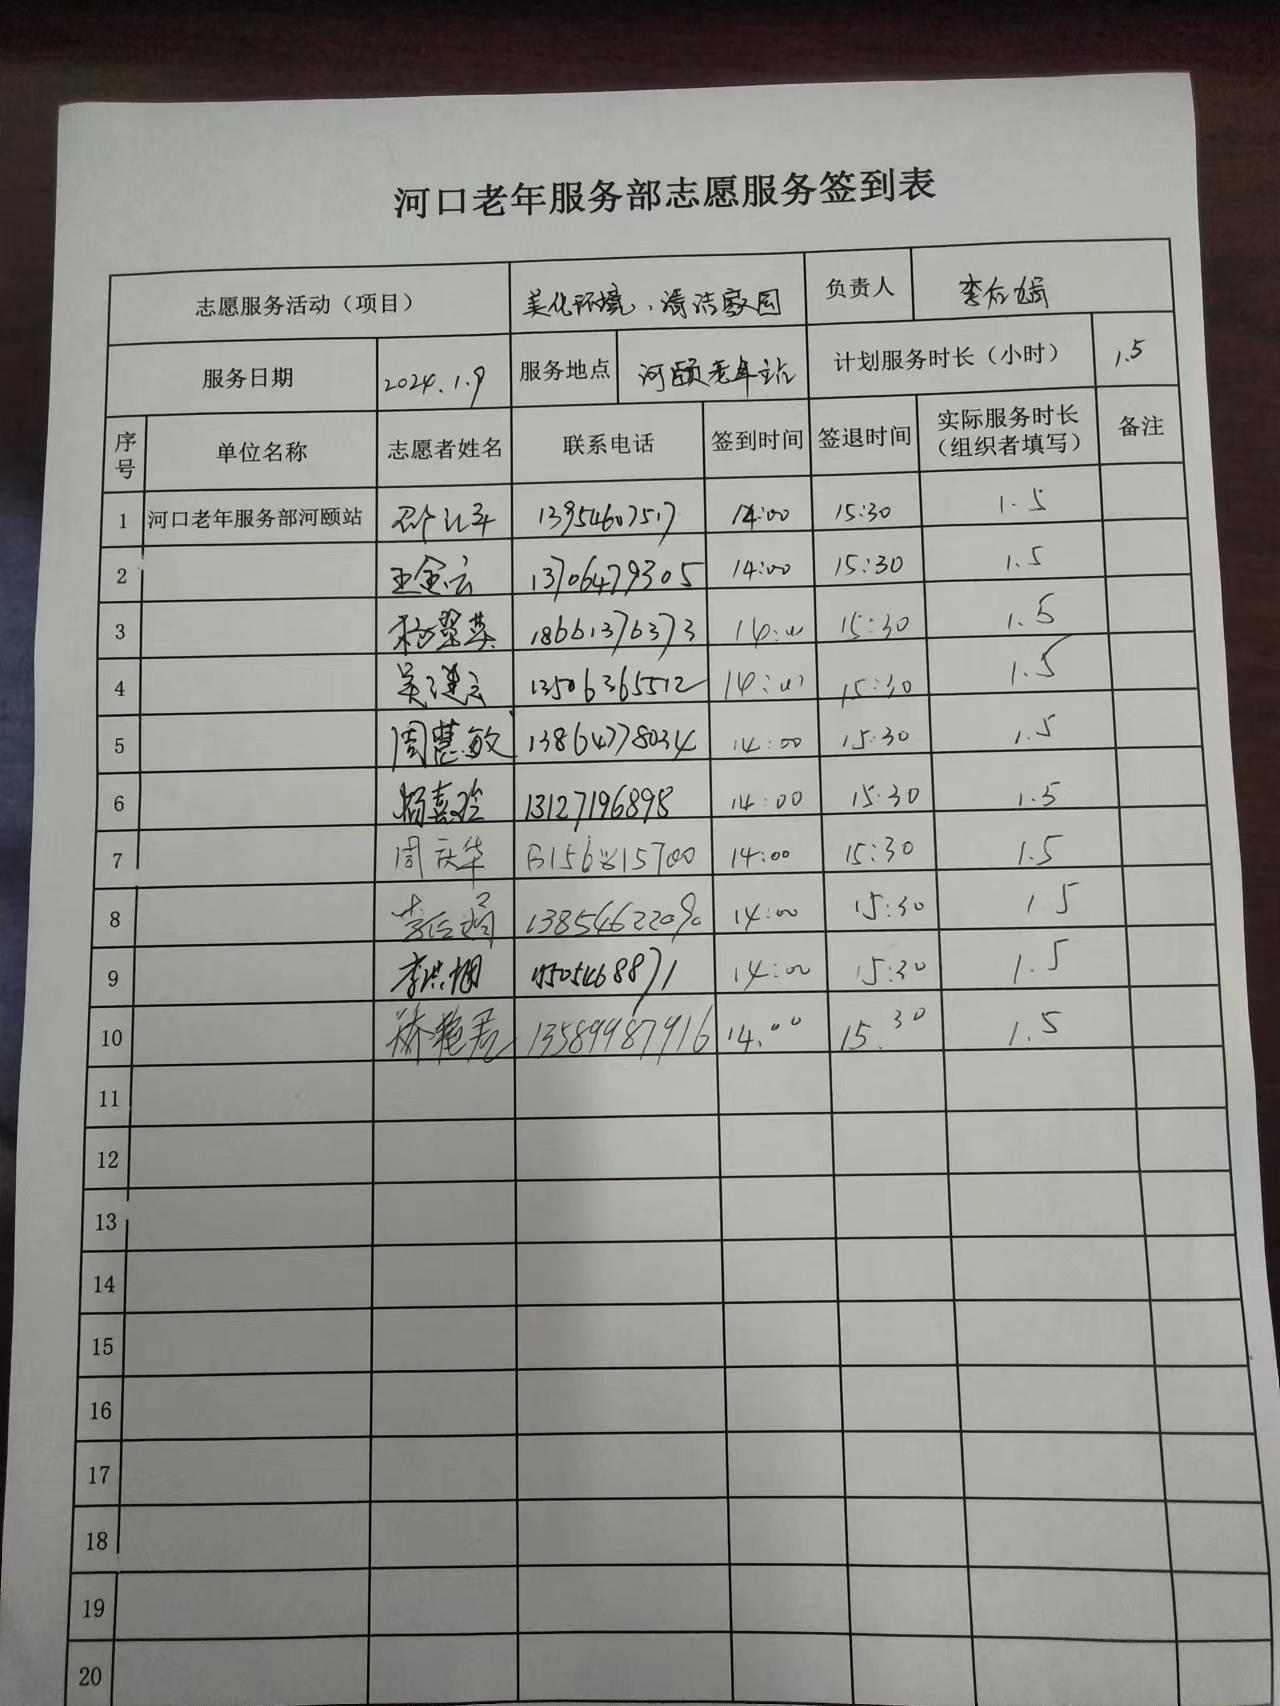 河口老年服务部志愿服务签到表
志愿服务活动（项目） 美化环境、清洁家园 负责人
服务日期 2024.1.9 服务地点 河颐老年站 计划服务时长（小时） 1.5
序号 单位名称 志愿者姓名 联系电话 签到时间 签退时间 实际服务时长（组织者填写） 备注
1 河口老年服务部河颐站 13954607517 14:00 15:30 1.5
2 王金云 13706479305 14:00 15:30 1.5
3 杨翠英 18661376373 14:00 15:30 1.5
4 13506365512 14:00 15:30 1.5
5 周慧敏 13864778034 14:00 15:30 1.5
6 杨喜玲 13127196898 14:00 15:30 1.5
7 周庆华 14:00 15:30 1.5
8 14:00 15:30 1.5
9 14:00 15:30 1.5
10 13589987916 14.00 15.30 1.5
11
12
13
14
15
16
17
18
19
20